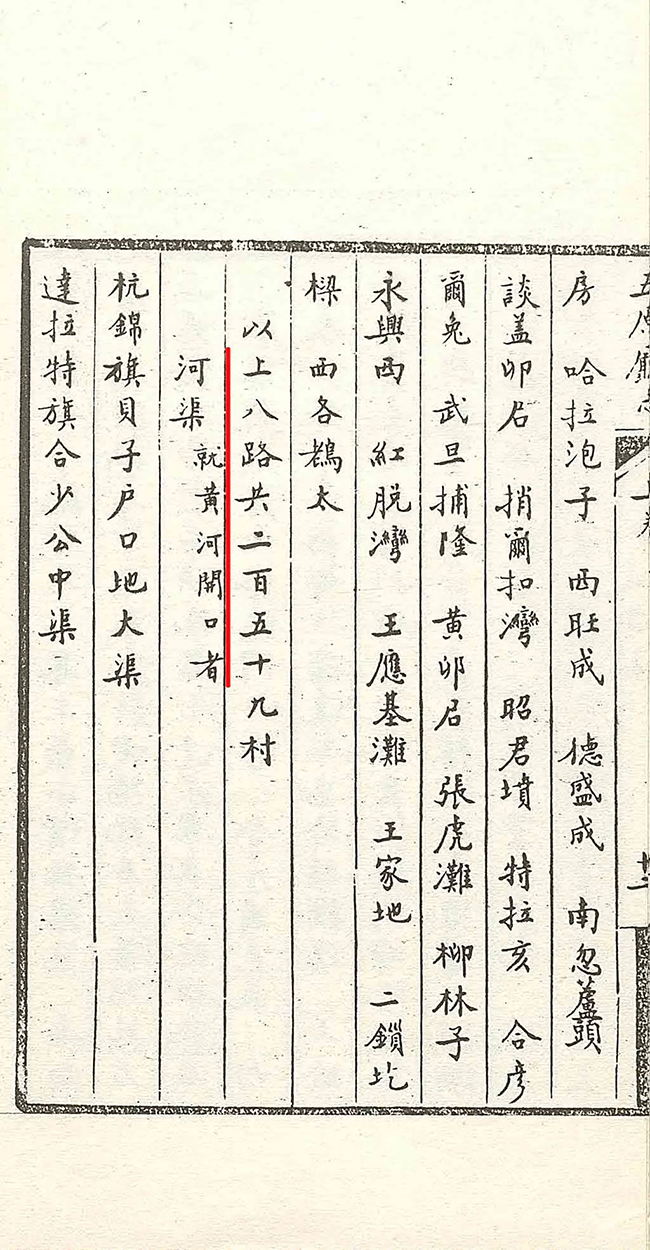 五原廳志 上卷 廿二
房 哈拉泡子 西旺成 德盛成 南忽蘆頭
談盖卯召 捎爾扣灣 昭君墳 特拉亥 合彦
爾兔 武旦捕隆 黄卯召 張虎灘 柳林子
永興西 紅脱灣 王應基灘 王家地 二鎖圪
樑 西各鵡太
以上八路共二百五十九村
河渠 就黄河開口者
杭錦旗貝子户口地大渠
達拉特旗合少公中渠